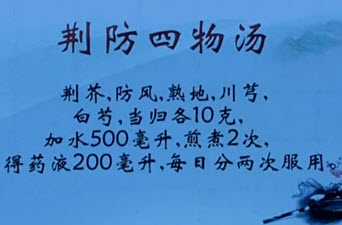 荆防四物汤
荆芥,防风,熟地,川芎,
白芍,当归各10克,
加水500毫升,煎煮2次,
得药液200毫升,每日分两次服用